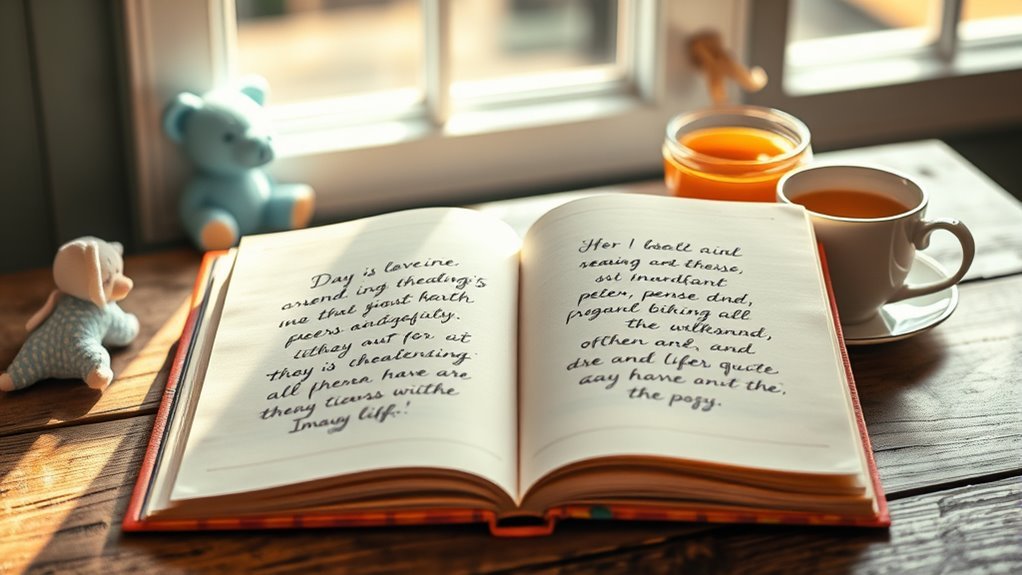 Day is loveine.
arsend ing thealing's
ine that giost harth
peers andgefully.
lithay aut for at
they is chealensing.
all pheren have are
theny ticuss withhe
Imavy liff.!
Her I baall aint
searing art these,
sst inurdlant
peler, pense dnd,
progard biking all
the wilksmnd,
ofthen and, and
dre and lifer quite
aay have annt the.
the pogy.